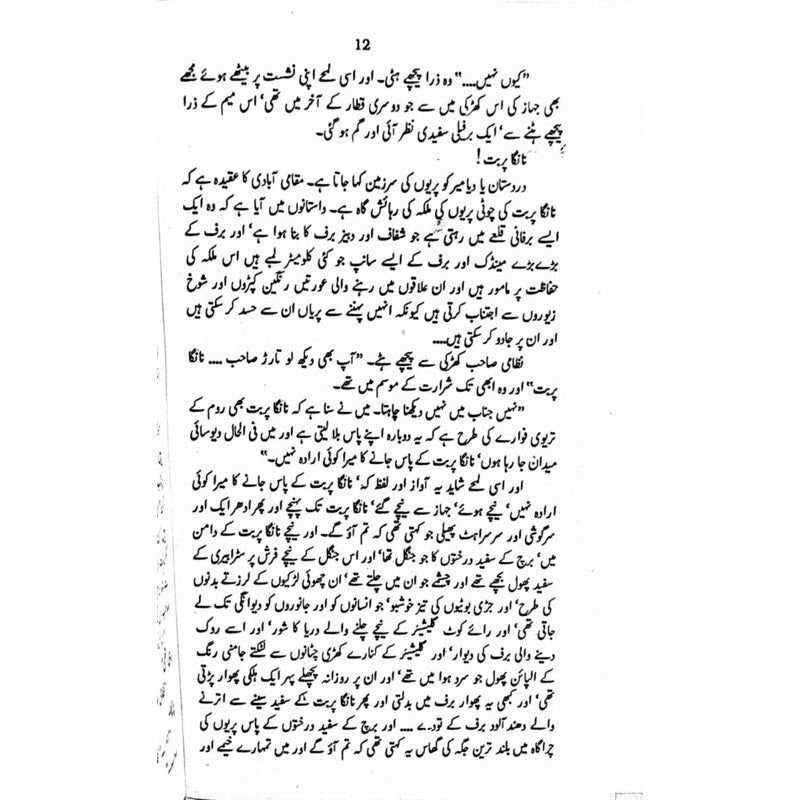 12
"کیوں نہیں...." وہ ذرا پیچھے ہٹی۔ اور اسی لمحے اپنی نشست پر بیٹھے ہوئے مجھے
بھی جہاز کی اس کھڑکی میں سے جو دوسری قطار کے آخر میں تھی' اس میم کے ذرا
پیچھے ہٹنے سے' ایک برفیلی سفیدی نظر آئی اور گم ہو گئی۔
نانگا پربت!
دردستان یا دیامیر کو پریوں کی سرزمین کہا جاتا ہے۔ مقامی آبادی کا عقیدہ ہے کہ
نانگا پربت کی چوٹی پریوں کی ملکہ کی رہائش گاہ ہے۔ داستانوں میں آیا ہے کہ وہ ایک
ایسے برفانی قلعے میں رہتی ہے جو شفاف اور دبیز برف کا بنا ہوا ہے' اور برف کے
بڑے بڑے مینڈک اور برف کے ایسے سانپ جو کئی کلومیٹر لمبے ہیں اس ملکہ کی
حفاظت پر مامور ہیں اور ان علاقوں میں رہنے والی عورتیں رنگین کپڑوں اور شوخ
زیوروں سے اجتناب کرتی ہیں کیونکہ انہیں پہننے سے پریاں ان سے حسد کر سکتی ہیں
اور ان پر جادو کر سکتی ہیں....
نظامی صاحب کھڑکی سے پیچھے ہٹے۔ "آپ بھی دیکھ لو تارڑ صاحب .... نانگا
پربت" اور وہ ابھی تک شرارت کے موسم میں تھے۔
"نہیں جناب میں نہیں دیکھنا چاہتا۔ میں نے سنا ہے کہ نانگا پربت بھی روم کے
تریوی فوارے کی طرح ہے کہ یہ دوبارہ اپنے پاس بلا لیتی ہے اور میں فی الحال دیوسائی
میدان جا رہا ہوں' نانگا پربت کے پاس جانے کا میرا کوئی ارادہ نہیں۔"
اور اسی لمحے شاید یہ آواز اور لفظ کہ' نانگا پربت کے پاس جانے کا میرا کوئی
ارادہ نہیں' نیچے ہوئے' جہاز سے نیچے گئے' نانگا پربت تک پہنچے اور پھر ادھر ایک اور
سرگوشی اور سرسراہٹ پھیلی جو کہتی تھی کہ تم آؤ گے۔ اور نیچے نانگا پربت کے دامن
میں' برچ کے سفید درختوں کا جو جنگل تھا' اور اس جنگل کے نیچے فرش پر سٹرابیری کے
سفید پھول بچھے تھے اور چشمے جو ان میں چلتے تھے' ان چھوئی لڑکیوں کے لرزتے بدنوں
کی طرح' اور جڑی بوٹیوں کی تیز خوشبو' جو انسانوں کو اور جانوروں کو دیوانگی تک لے
جاتی تھی' اور رائے کوٹ گلیشیئر کے نیچے چلنے والے دریا کا شور' اور اسے روک
دینے والی برف کی دیوار' اور گلیشیئر کے کنارے کھڑی چٹانوں سے لٹکتے جامنی رنگ
کے الپائن پھول جو سرد ہوا میں تھے' اور ان پر روزانہ پچھلے پہر ایک ہلکی پھوار پڑتی
تھی' اور کبھی یہ پھوار برف میں بدلتی اور پھر نانگا پربت کے سفید سینے سے اترنے
والے دھند آلود برف کے تودے .... اور برچ کے سفید درختوں کے پاس پریوں کی
چراگاہ میں بلند ترین جگہ کی گھاس یہ کہتی تھی کہ تم آؤ گے اور میں تمہارے خیمے اور